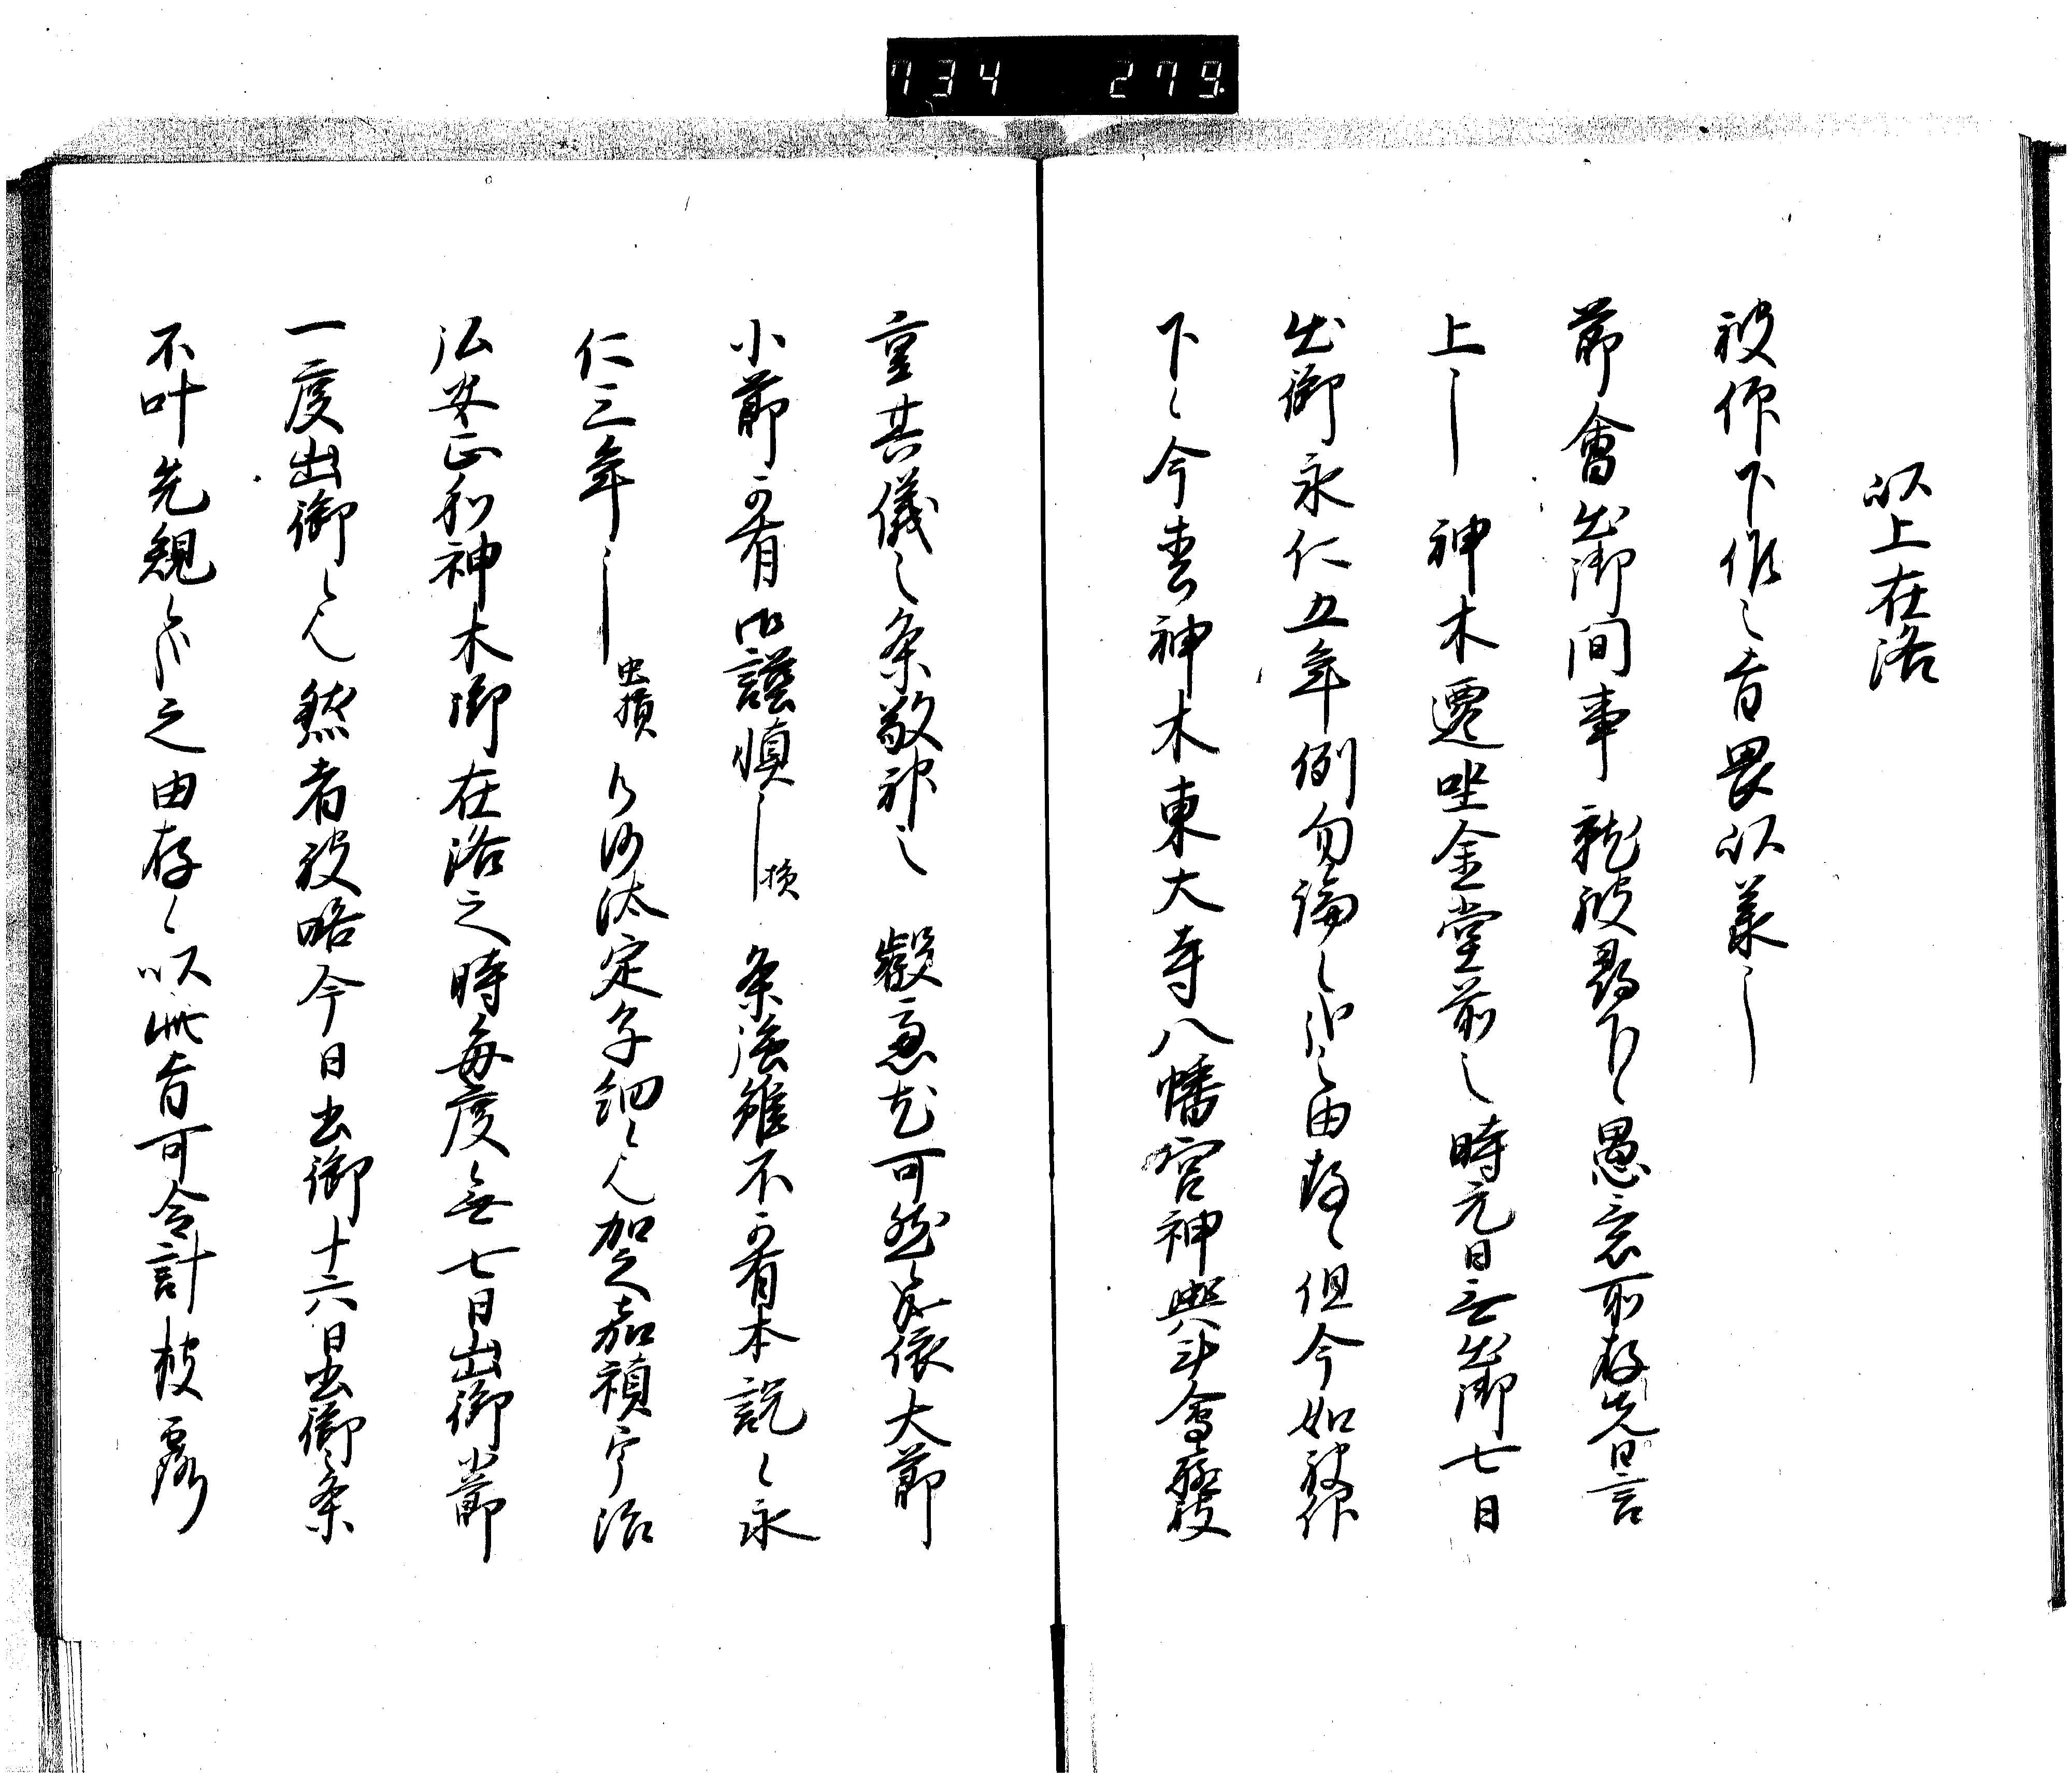 734 279
以上在洛
被仰下候之旨畏以承了
節會出御間事就被尋下候愚意所存先日言
上了 神木遷坐金堂前之時元日無出御七日
出御永仁五年例勿論候哉之由存候但今如被仰
下候今春神木東大寺八幡宮神輿計會歟
重其儀之条敬神之 叡慮尤可然候歟依大節
小節可有御謹慎了損 条強雖不可有本説候永
仁三年了虫損 沙汰定子細候歟加之嘉禎宇治
弘安正和神木御在洛之時毎度無七日出御節
一度出御候歟然者被略今日出御十六日出御条
不叶先規候歟之由存候以此旨可令計披露